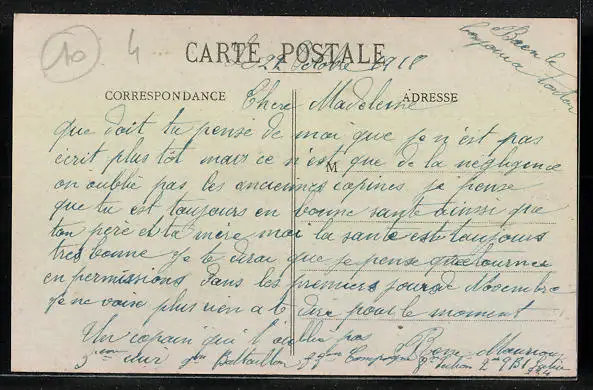 10
4
CARTE POSTALE
Le 22 Octobre 1918
Bien le
bonjour a
CORRESPONDANCE
ADRESSE
Chere Madeleine
que doit tu pensé de moi que je n'est pas
écrit plus tôt mais ce n'est que de la négligence
M
on oublie pas les anciennes copines je pense
que tu est toujours en bonne santé ainssi que
ton père et ta mère moi la santé est toujours
très bonne je te dirai que je pense
en permissions dans les premiers jours de Novembre
je ne vois plus rien a te dire pour le moment
Un copain qui t'oublie pas
Maurice
Bataillon Compagnie